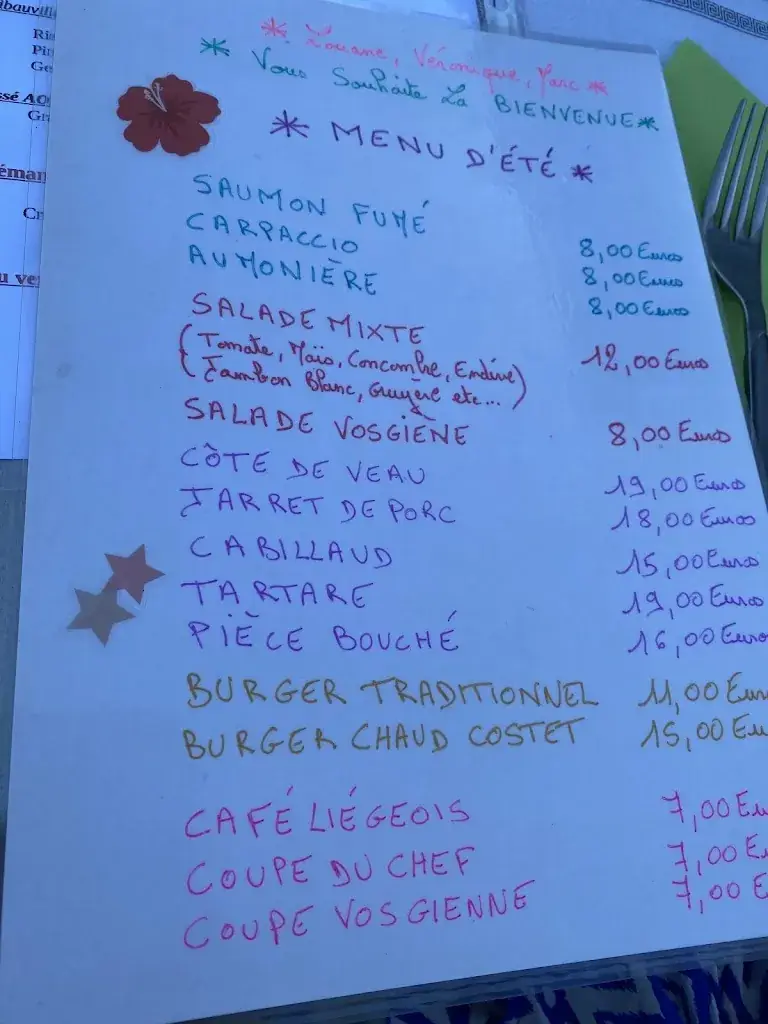 * Louane, Véronique, Marc *
* Vous Souhaite La BIENVENUE *
* MENU D'ÉTÉ *
SAUMON FUMÉ 8,00 Euros
CARPACCIO 8,00 Euros
AUMONIÈRE 8,00 Euros
SALADE MIXTE 12,00 Euros
(Tomate, Maïs, Concombre, Endive)
(Jambon Blanc, Gruyère etc...)
SALADE VOSGIÈNE 8,00 Euros
CÔTE DE VEAU 19,00 Euros
JARRET DE PORC 18,00 Euros
CABILLAUD 15,00 Euros
TARTARE 19,00 Euros
PIÈCE BOUCHÉ 16,00 Euros
BURGER TRADITIONNEL 11,00 Eur
BURGER CHAUD COSTET 15,00 Eu
CAFÉ LIÉGEOIS 7,00 Eu
COUPE DU CHEF 7,00 E
COUPE VOSGIENNE 7,00 E